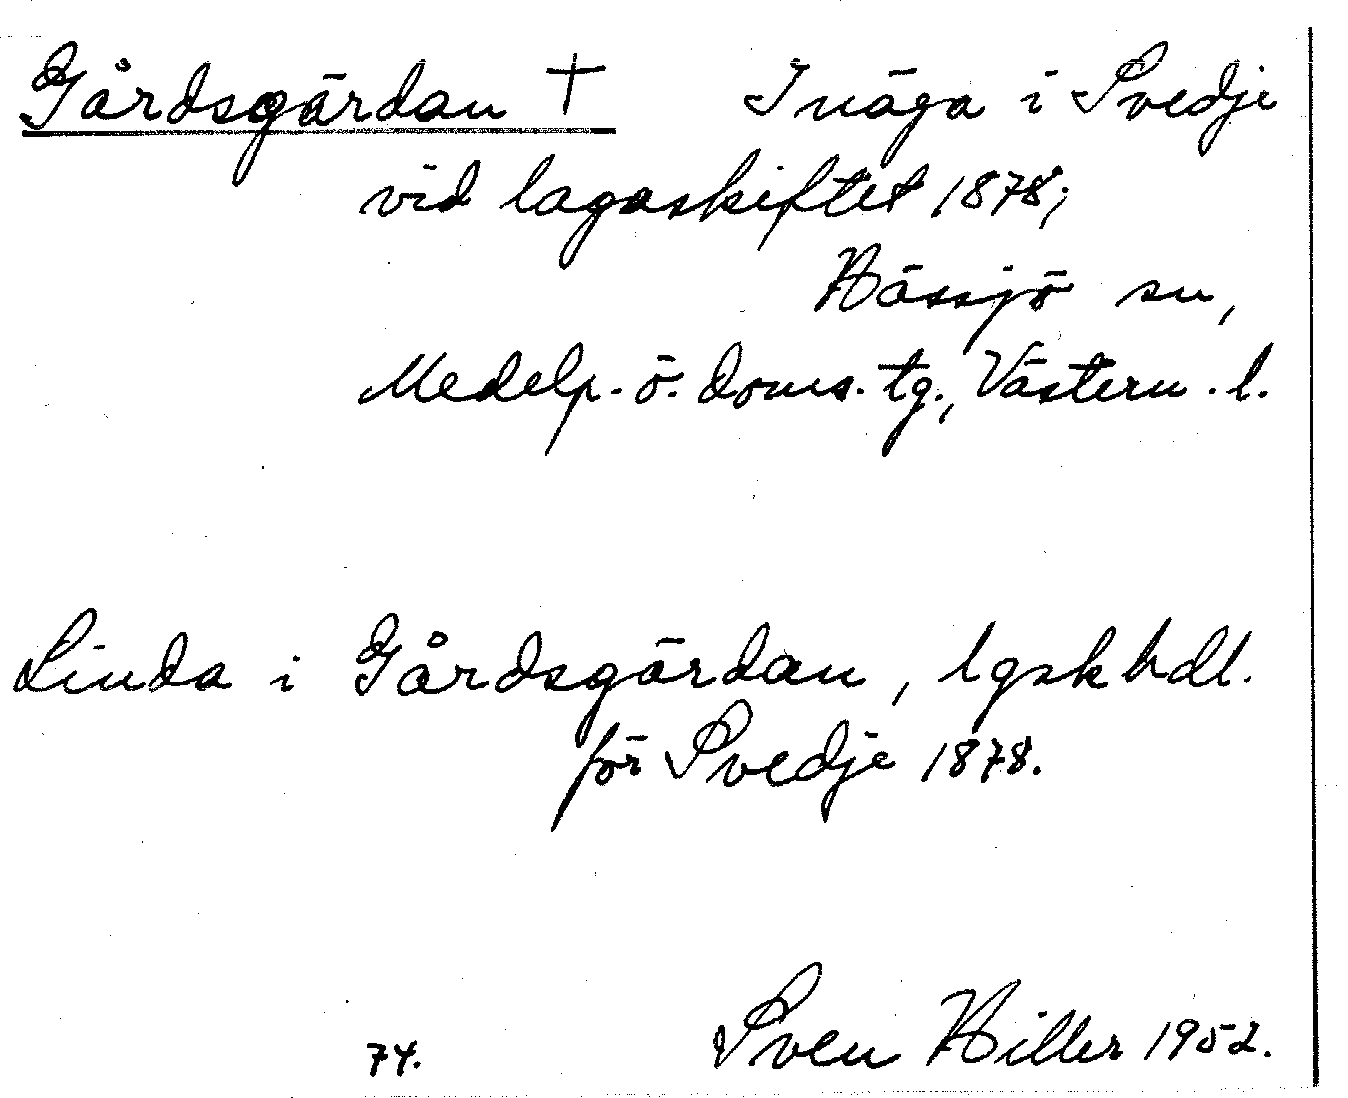 Gårdsgärdan † Inäga i Svedje
vid lagaskiftet 1878;
Hässjö sn,
Medelp. ö. doms. tg., Västern. l.
Linda i Gårdsgärdan, lgskhdl.
för Svedje 1878.
74. Sven Hiller 1952.